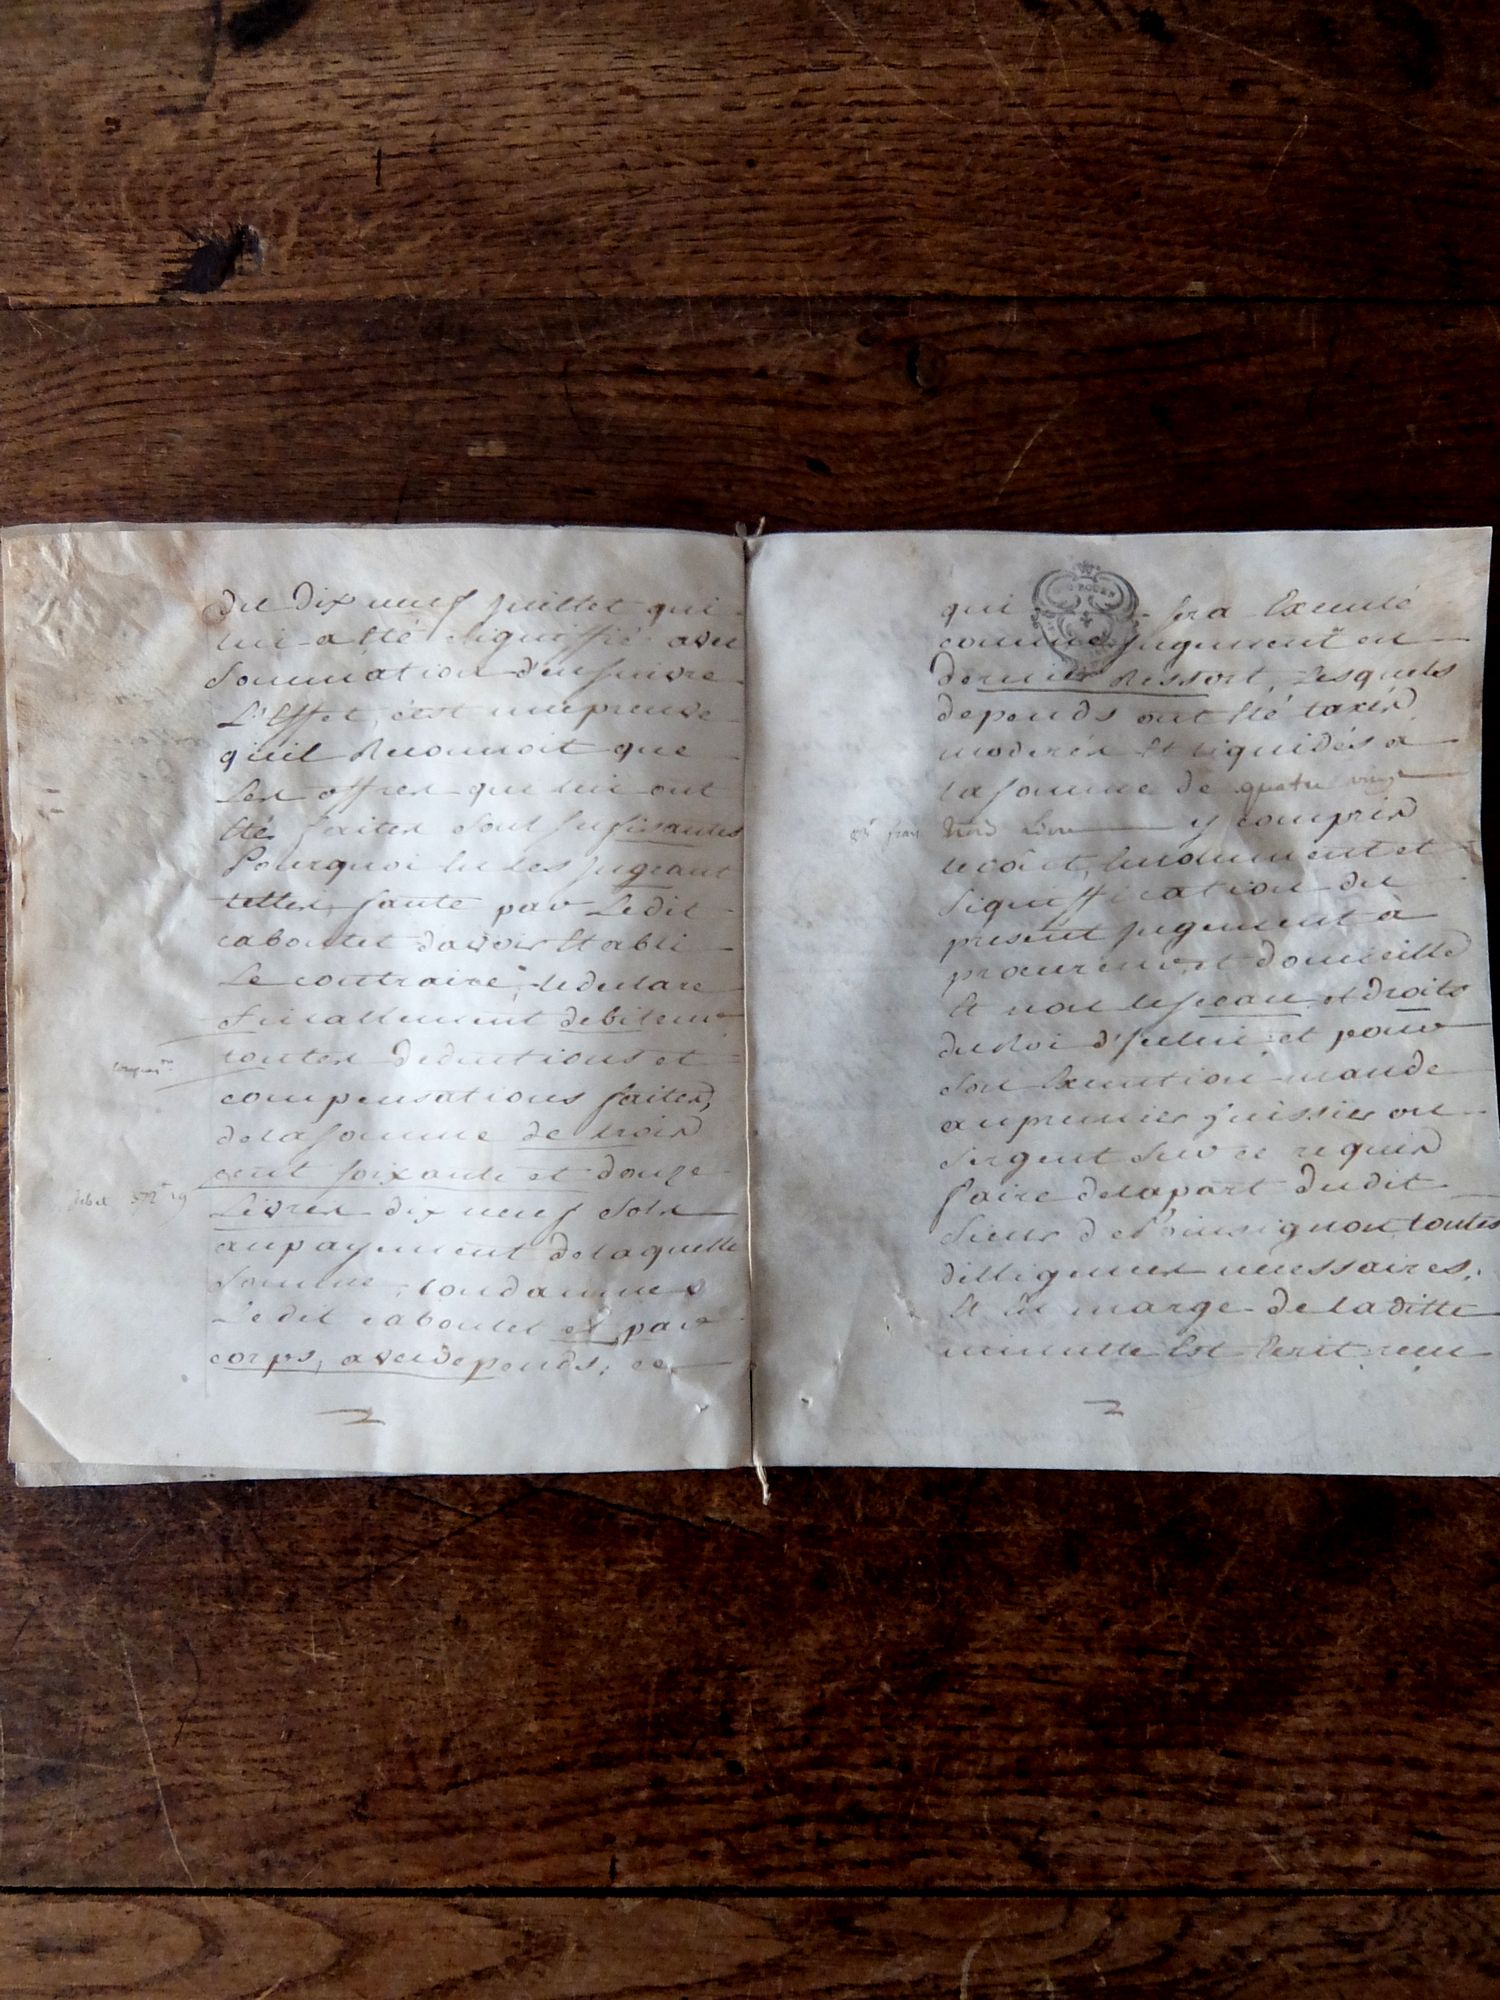 du dix neuf juillet qui
lui a eté signiffié avec
Sommation d'ensuivre
L'Effet, c'est une preuve
qu'il Reconnoit que
Les offres qui lui ont
eté faites sont sufisantes
Pourquoi les jugeant
telles, faute par Ledit
caboulet davoir Etabli
Le contraire, le declare
finallement debiteur
toutes deductions et
compensations faites,
delasomme de trois
cent soixante et douze
Livres dix neuf sols
au payement delaquelle
somme, condamnes
Ledit caboulet et par
corps, avec depends; ce
qui sera Executé
comme jugement en
dernier Ressort, Lesquels
depends ont eté taxés
moderés et liquidés a
la somme de quatre vingt
trois Livres y compris
le coût, Emolument et
signiffication du
present jugement à
procureur et domicille
et non le sceau et droits
du Roi d'Icelui; et pour
son Execution mande
au premier huissier ou
sergent sur ce requis
faire delapart dudit
sieur de toutes
dilligences necessaires,
Et En marge de laditte
minutte Est Ecrit
ROUEN
frais